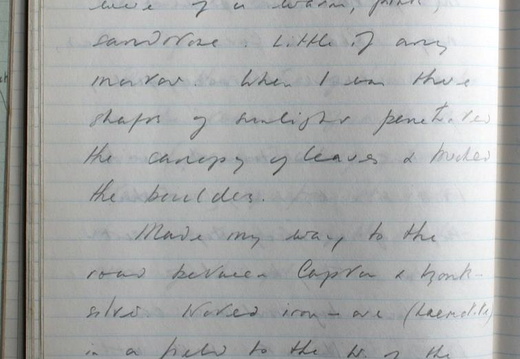 were of a warm, pink,
sandstone. Little if any
When I was there
shafts of sunlight penetrated
the canopy of leaves &
the boulders.
Made my way to the
road between &
Noted iron-ore (haematite)
in a field to the of the